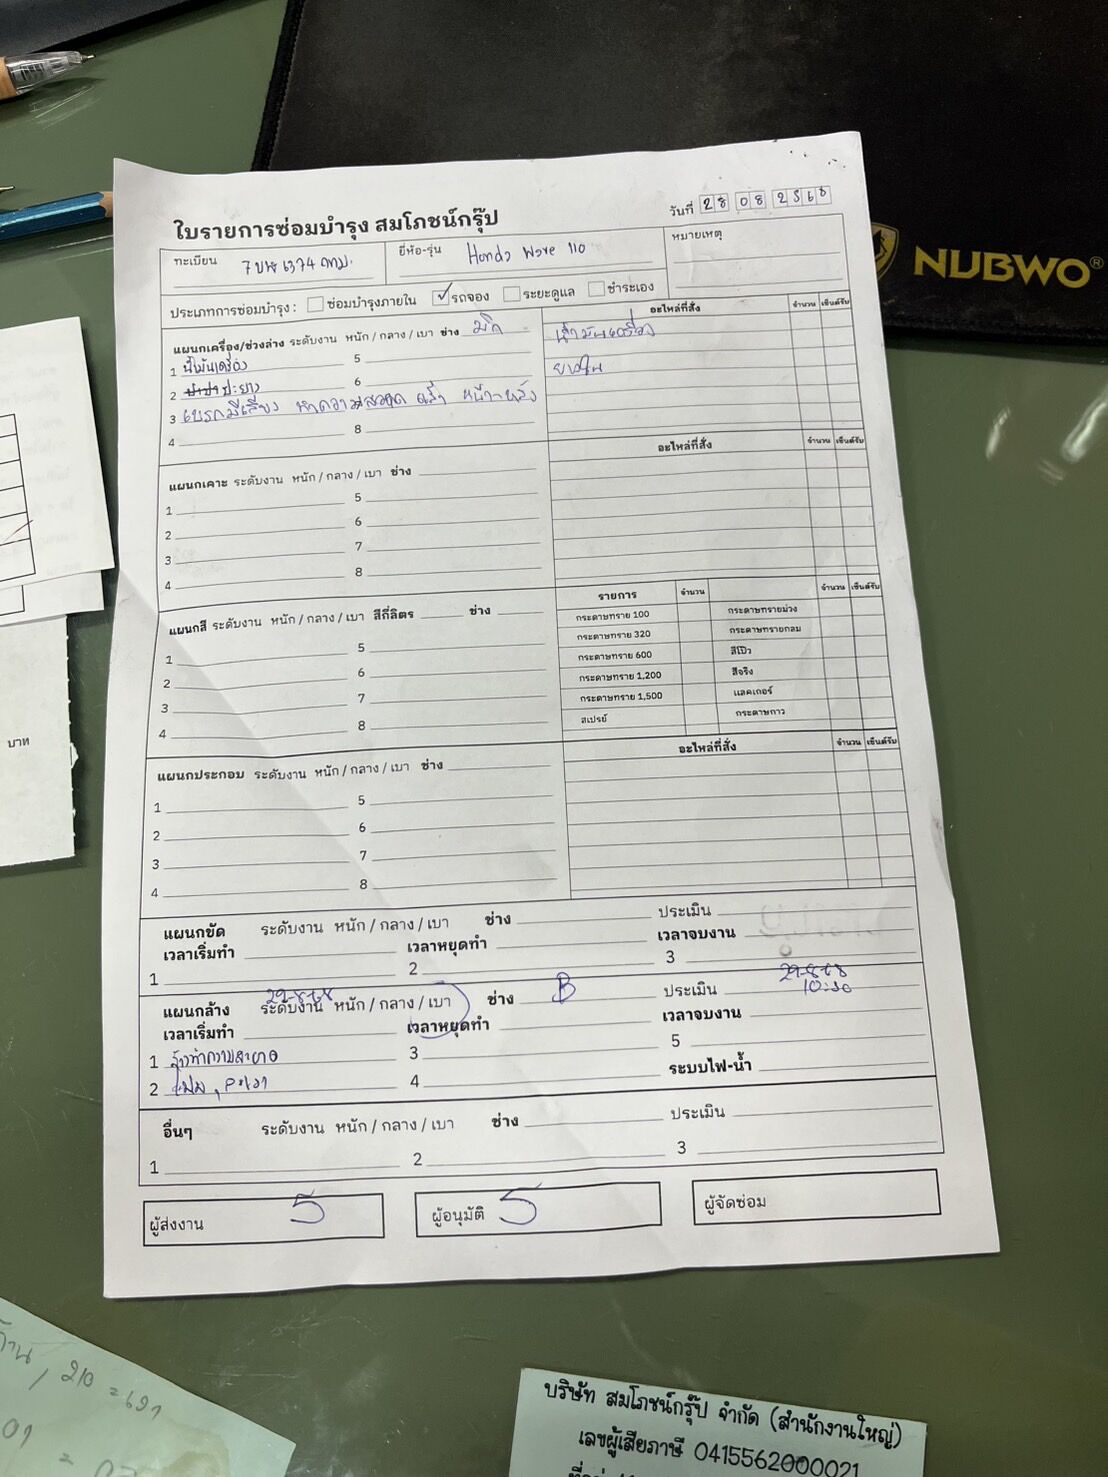 NUBWO®
ใบรายการซ่อมบำรุง สมโภชน์กรุ๊ป
วันที่ 28 08 2568
ทะเบียน
ยี่ห้อ-รุ่น Honda Wave 110
หมายเหตุ
ประเภทการซ่อมบำรุง : ซ่อมบำรุงภายใน ✓ รถจอง ระยะดูแล ชำระเอง
แผนกเครื่อง/ช่วงล่าง ระดับงาน หนัก / กลาง / เบา ช่าง
อะไหล่ที่สั่ง จำนวน เซ็นต์รับ
น้ำมันเครื่อง
1
5
ยางใน
2 ปะยาง
6
3 เบรกมีเสียง ทำความสะอาด หน้า-หลัง
4
8
แผนกเคาะ ระดับงาน หนัก / กลาง / เบา ช่าง
อะไหล่ที่สั่ง จำนวน เซ็นต์รับ
1
5
2
6
3
7
4
8
แผนกสี ระดับงาน หนัก / กลาง / เบา สีกี่ลิตร ช่าง
รายการ จำนวน จำนวน เซ็นต์รับ
กระดาษทราย 100 กระดาษทรายม่วง
กระดาษทราย 320 กระดาษทรายกลม
กระดาษทราย 600 สีโป๊ว
กระดาษทราย 1,200 สีจริง
กระดาษทราย 1,500 แลคเกอร์
สเปรย์ กระดาษกาว
1
5
2
6
3
7
4
8
แผนกประกอบ ระดับงาน หนัก / กลาง / เบา ช่าง
อะไหล่ที่สั่ง จำนวน เซ็นต์รับ
1
5
2
6
3
7
4
8
แผนกขัด ระดับงาน หนัก / กลาง / เบา ช่าง ประเมิน
เวลาเริ่มทำ เวลาหยุดทำ เวลาจบงาน
1 2 3
แผนกล้าง ระดับงาน หนัก / กลาง / เบา ช่าง B ประเมิน
29-8-68
29-8-68
10:30
เวลาเริ่มทำ เวลาหยุดทำ เวลาจบงาน
1 ล้างทำความสะอาด 3 5
2 4 ระบบไฟ-น้ำ
อื่นๆ ระดับงาน หนัก / กลาง / เบา ช่าง ประเมิน
1 2 3
ผู้ส่งงาน
ผู้อนุมัติ
ผู้จัดซ่อม
บาท
บริษัท สมโภชน์กรุ๊ป จำกัด (สำนักงานใหญ่)
เลขผู้เสียภาษี 0415562000021